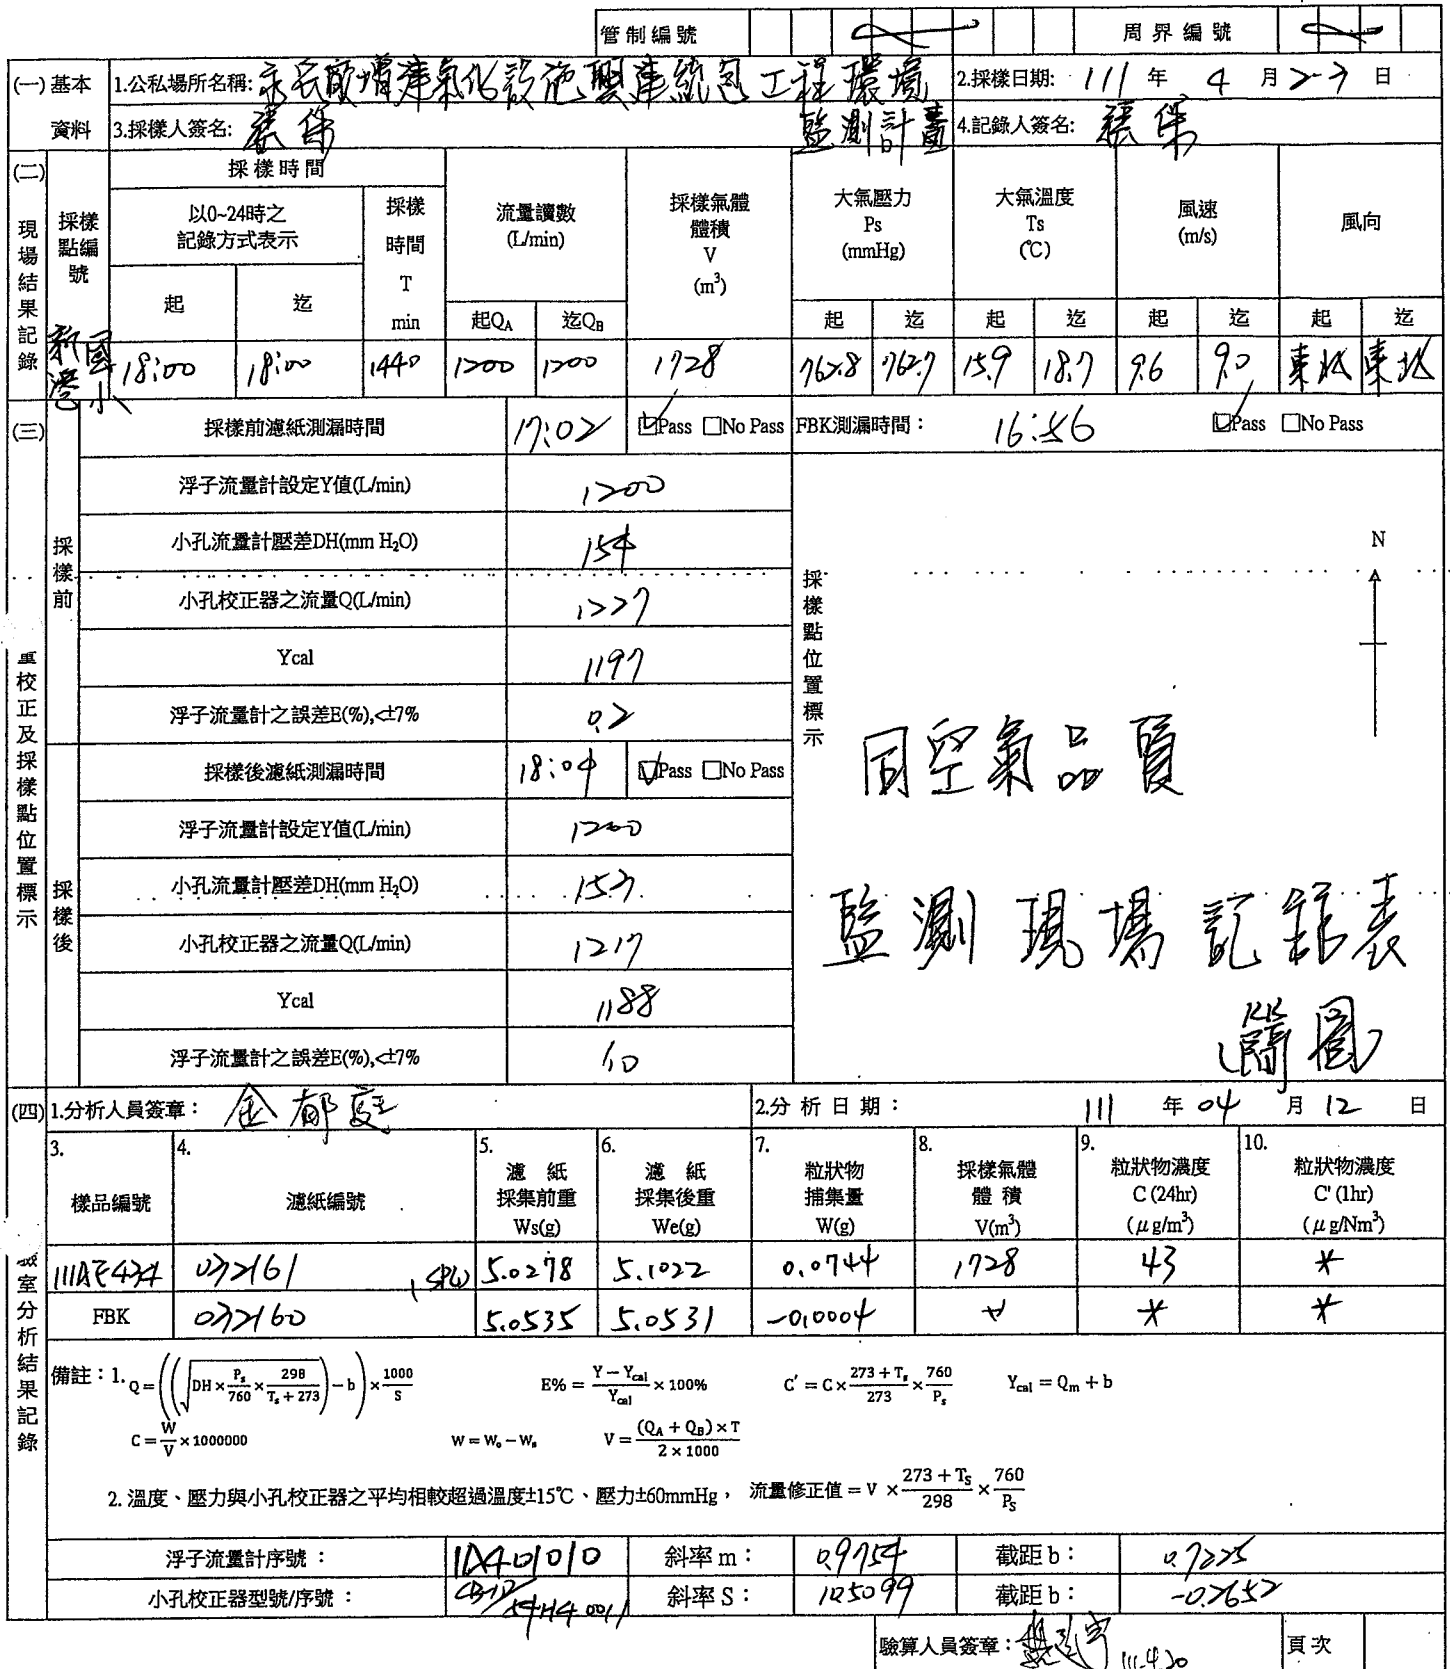 管制編號 周界編號
(一)基本資料 1.公私場所名稱: 永安廠增建氣化設施興建統包工程環境監測計畫 2.採樣日期: 111 年 4 月 2-3 日
3.採樣人簽名: 4.記錄人簽名:
(二)現場結果記錄
採樣點編號 採樣時間 流量讀數 (L/min) 採樣氣體體積 V (m³) 大氣壓力 Ps (mmHg) 大氣溫度 Ts (℃) 風速 (m/s) 風向
以0~24時之記錄方式表示 採樣時間 T min
起 迄 起QA 迄QB 起 迄 起 迄 起 迄 起 迄
新港國小 18:00 18:00 1440 1200 1200 1728 762.8 762.7 15.9 18.7 9.6 9.0 東北 東北
(三) 重校正及採樣點位置標示
採樣前濾紙測漏時間 17:02 ☑Pass □No Pass FBK測漏時間: 16:56 ☑Pass □No Pass
採樣前
浮子流量計設定Y值(L/min) 1200
小孔流量計壓差DH(mm H₂O) 154
小孔校正器之流量Q(L/min) 1227
Ycal 1197
浮子流量計之誤差E(%),<±7% 0.2
採樣後濾紙測漏時間 18:04 ☑Pass □No Pass
採樣後
浮子流量計設定Y值(L/min) 1200
小孔流量計壓差DH(mm H₂O) 153
小孔校正器之流量Q(L/min) 1217
Ycal 1188
浮子流量計之誤差E(%),<±7% 1.0
採樣點位置標示
N
同空氣品質
監測現場記錄表
(簡圖)
(四) 驗室分析結果記錄
1.分析人員簽章: 2.分析日期: 111 年 04 月 12 日
3. 樣品編號 4. 濾紙編號 5. 濾紙採集前重 Ws(g) 6. 濾紙採集後重 We(g) 7. 粒狀物捕集量 W(g) 8. 採樣氣體體積 V(m³) 9. 粒狀物濃度 C (24hr) (μg/m³) 10. 粒狀物濃度 C' (1hr) (μg/Nm³)
111AE434 032161 5.0278 5.1022 0.0744 1728 43 *
FBK 032160 5.0535 5.0531 -0.0004 * * *
備註:1. Q = ((√(DH × Ps/760 × 298/(Ts + 273)) − b) × 1000/S E% = (Y − Ycal)/Ycal × 100% C' = C × (273 + Ts)/273 × 760/Ps Ycal = Qm + b
C = W/V × 1000000 W = We − Ws V = ((QA + QB) × T)/(2 × 1000)
2. 溫度、壓力與小孔校正器之平均相較超過溫度±15℃、壓力±60mmHg, 流量修正值 = V × (273 + TS)/298 × 760/PS
浮子流量計序號: 11A401010 斜率m: 0.9754 截距b: 0.7225
小孔校正器型號/序號: 斜率S: 10.5099 截距b: -0.2652
驗算人員簽章: 111.4.20 頁次